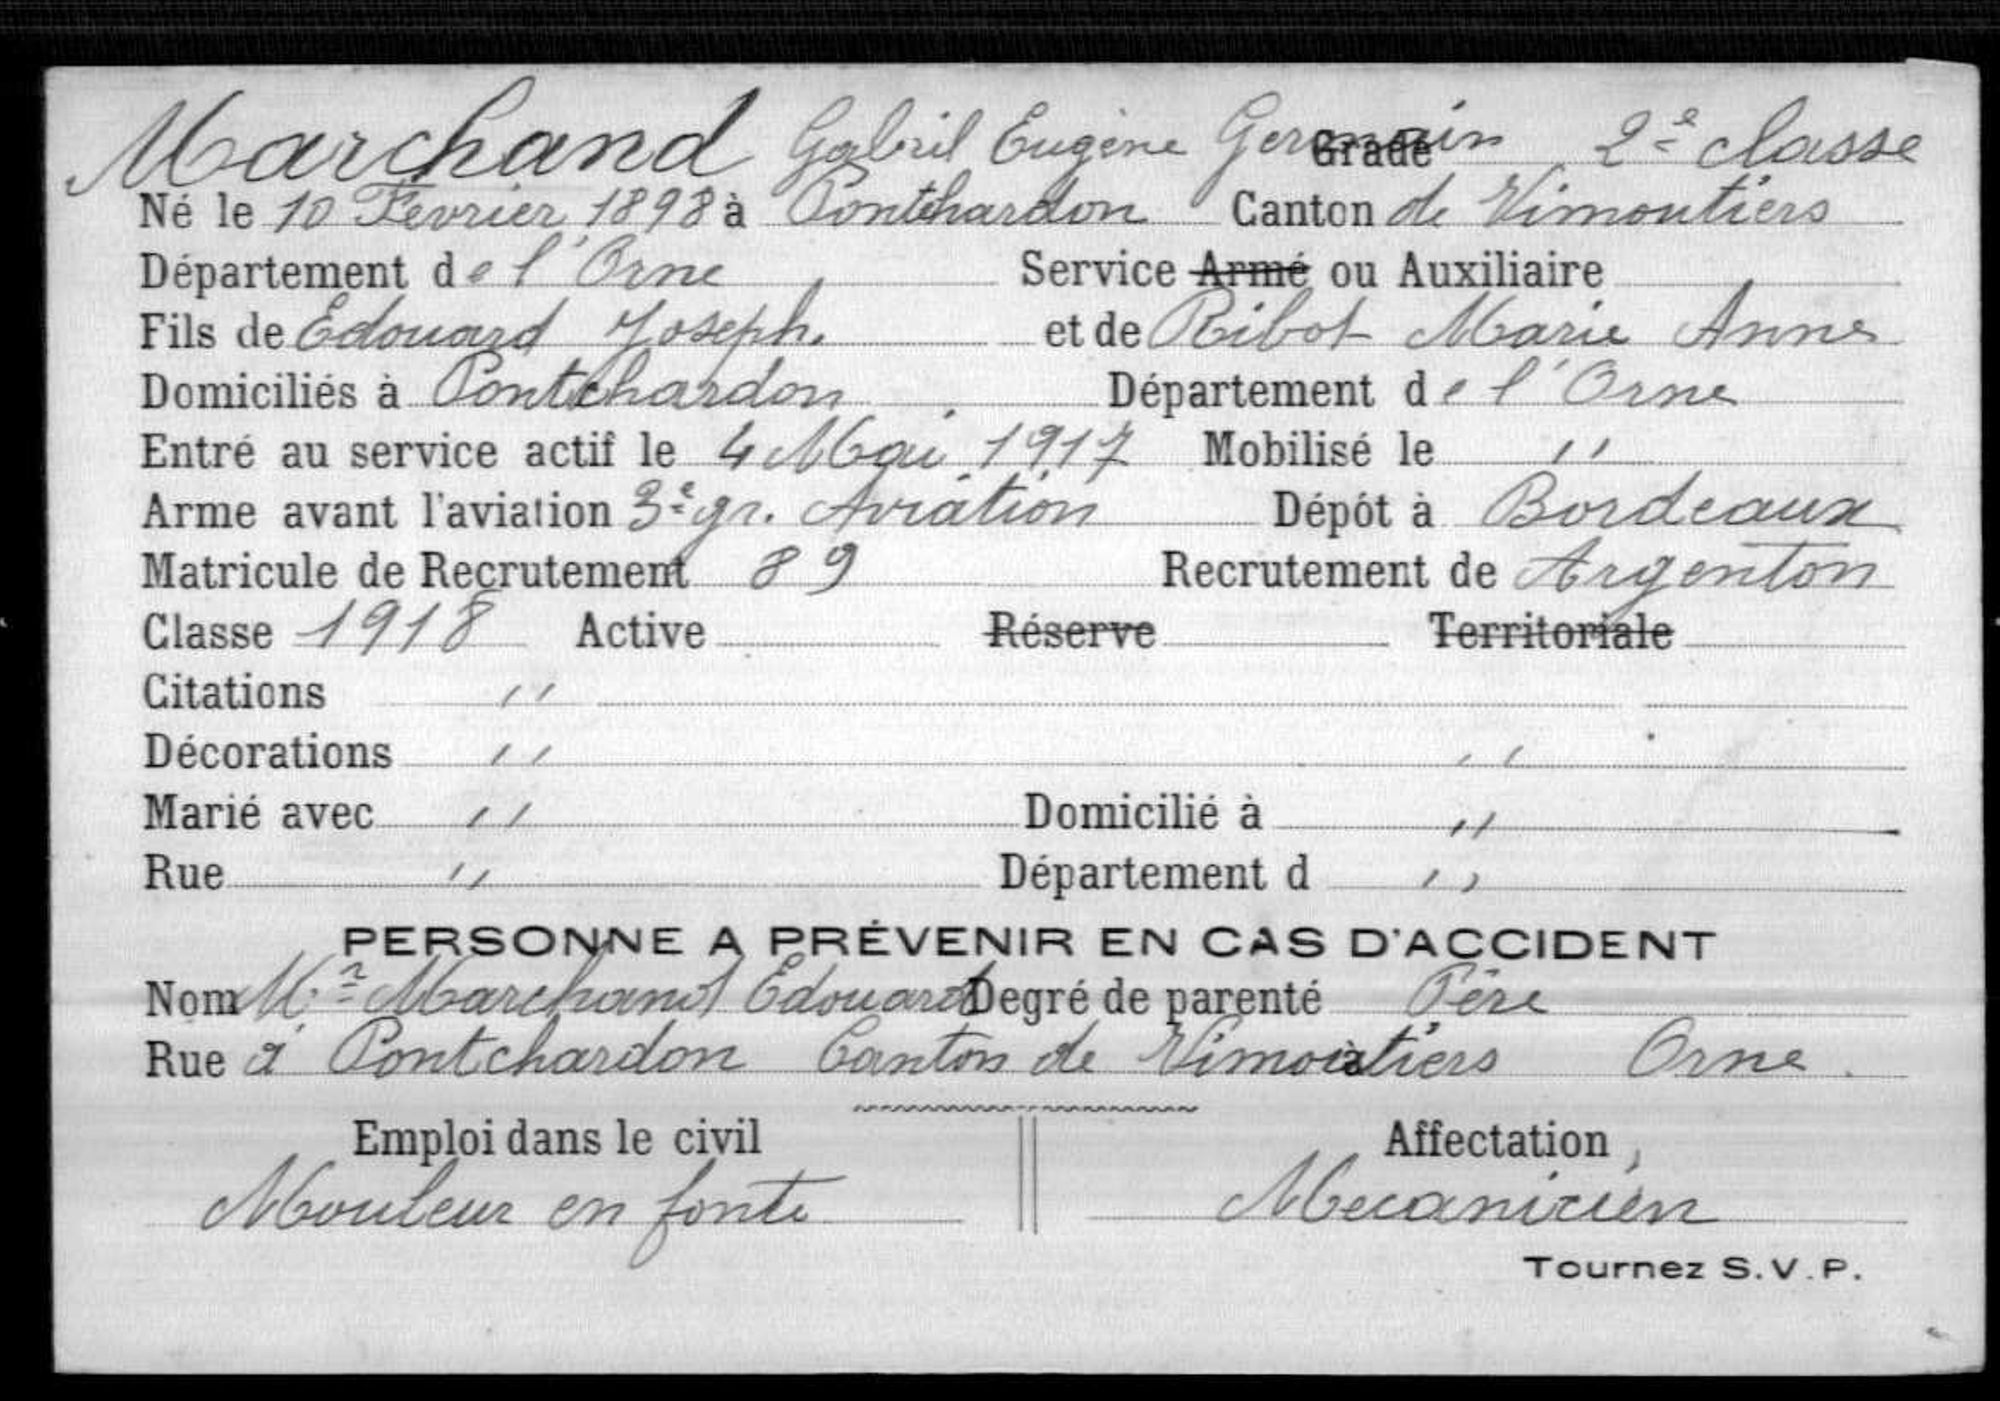 Marchand Gabril Eugène Germain Grade 2e classe
Né le 10 Fevrier 1898 à Pontchardon Canton de Vimoutiers
Département de l'Orne Service Armé ou Auxiliaire
Fils de Edouard Joseph. et de Ribot Marie Anne
Domiciliés à Pontchardon Département de l'Orne
Entré au service actif le 4 Mai 1917 Mobilisé le "
Arme avant l'aviation 3e gr. Aviation Dépôt à Bordeaux
Matricule de Recrutement 89 Recrutement de Argenton
Classe 1918 Active Réserve Territoriale
Citations "
Décorations " "
Marié avec " Domicilié à "
Rue " Département d "
PERSONNE A PRÉVENIR EN CAS D'ACCIDENT
Nom Mr Marchand Edouard Degré de parenté Père
Rue à Pontchardon Canton de Vimoutiers Orne.
Emploi dans le civil Affectation
Mouleur en fonte Mécanicien
Tournez S.V.P.